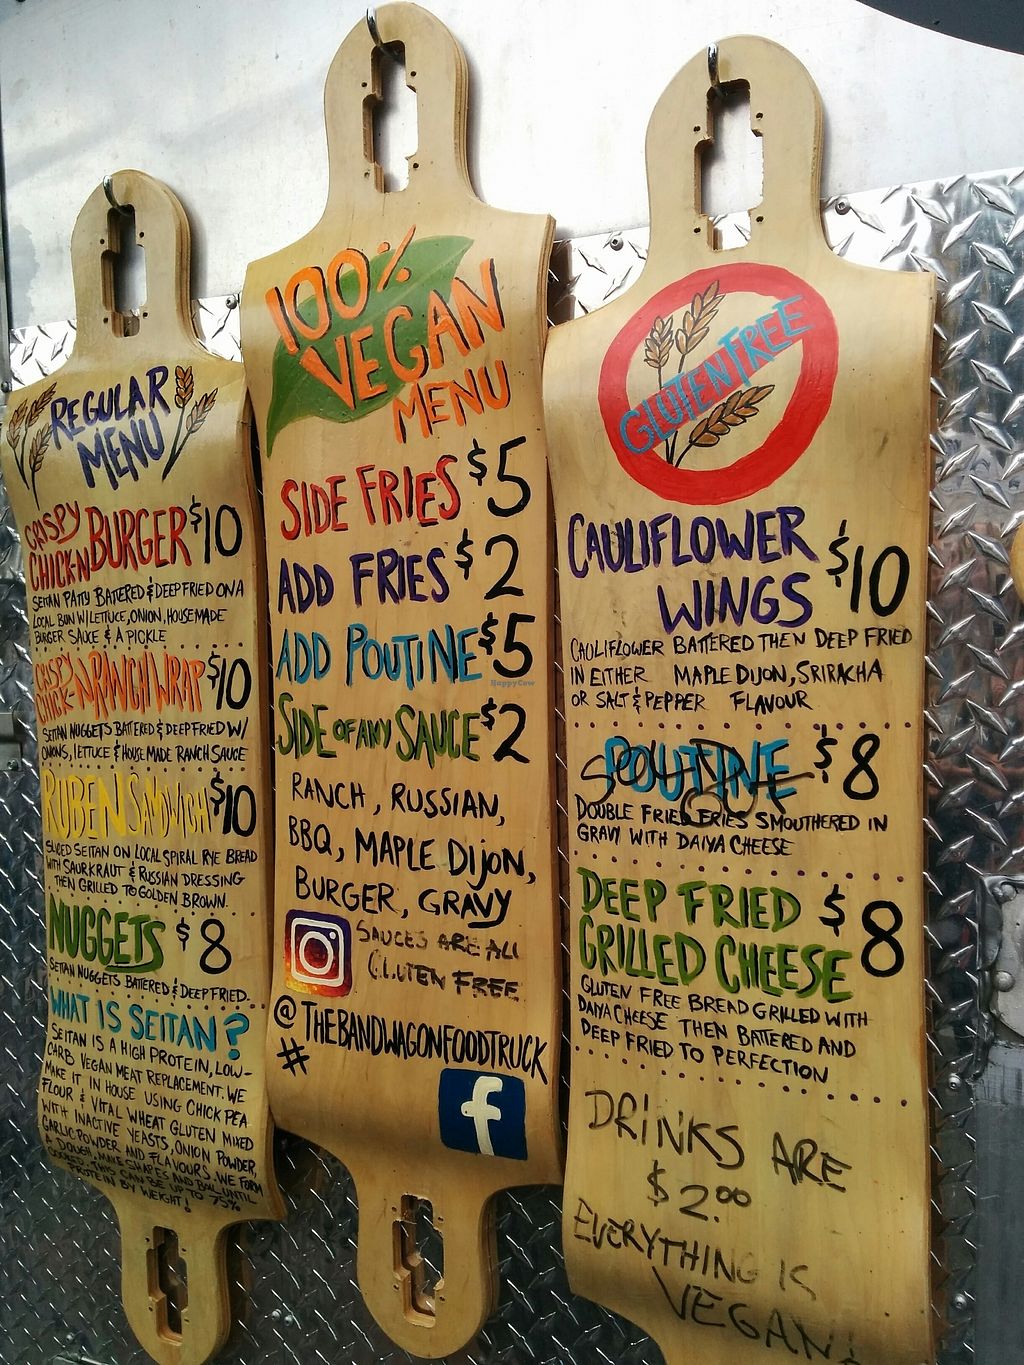 REGULAR
MENU
CRISPY
CHICK-N BURGER $10
SEITAN PATTY BATTERED & DEEP FRIED ON A
LOCAL BUN W/ LETTUCE, ONION, HOUSEMADE
BURGER SAUCE & A PICKLE
CRISPY
CHICK-N RANCH WRAP $10
SEITAN NUGGETS BATTERED & DEEP FRIED W/
ONIONS, LETTUCE & HOUSE MADE RANCH SAUCE
RUBEN SANDWICH $10
SLICED SEITAN ON LOCAL SPIRAL RYE BREAD
WITH SAURKRAUT & RUSSIAN DRESSING
THEN GRILLED TO GOLDEN BROWN.
NUGGETS $8
SEITAN NUGGETS BATTERED & DEEP FRIED.
WHAT IS SEITAN?
SEITAN IS A HIGH PROTEIN, LOW-
CARB VEGAN MEAT REPLACEMENT. WE
MAKE IT IN HOUSE USING CHICK PEA
FLOUR & VITAL WHEAT GLUTEN MIXED
WITH INACTIVE YEASTS, ONION POWDER,
GARLIC POWDER AND FLAVOURS. WE FORM
A DOUGH, MAKE SHAPES AND BOIL UNTIL
COOKED. THIS CAN BE UP TO 75%
PROTEIN BY WEIGHT!
100%
VEGAN
MENU
SIDE FRIES $5
ADD FRIES $2
ADD POUTINE $5
SIDE OF ANY SAUCE $2
RANCH, RUSSIAN,
BBQ, MAPLE DIJON,
BURGER, GRAVY
SAUCES ARE ALL
GLUTEN FREE
@ THEBANDWAGONFOODTRUCK
#
f
HappyCow
GLUTEN FREE
CAULIFLOWER
WINGS $10
CAULIFLOWER BATTERED THEN DEEP FRIED
IN EITHER MAPLE DIJON, SRIRACHA
OR SALT & PEPPER FLAVOUR
POUTINE $8
SOLD OUT
DOUBLE FRIED FRIES SMOUTHERED IN
GRAVY WITH DAIYA CHEESE
DEEP FRIED
GRILLED CHEESE $8
GLUTEN FREE BREAD GRILLED WITH
DAIYA CHEESE THEN BATTERED AND
DEEP FRIED TO PERFECTION
DRINKS ARE
$2.00
EVERYTHING IS
VEGAN!